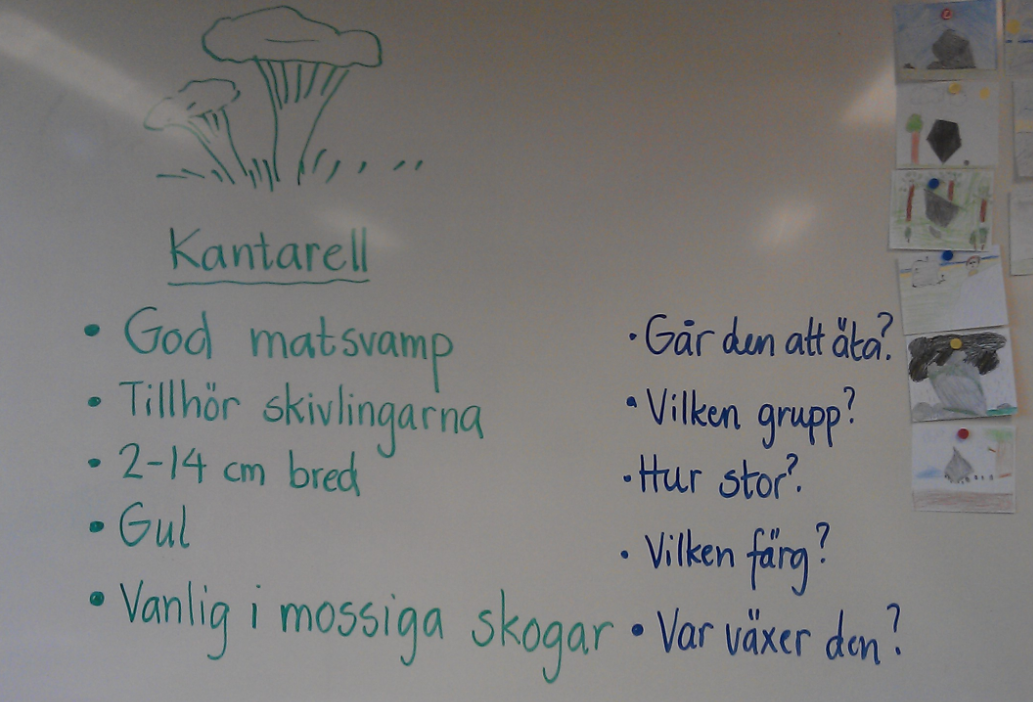 Kantarell
• God matsvamp
• Tillhör skivlingarna
• 2-14 cm bred
• Gul
• Vanlig i mossiga skogar
• Går den att äta?
• Vilken grupp?
• Hur stor?
• Vilken färg?
• Var växer den?